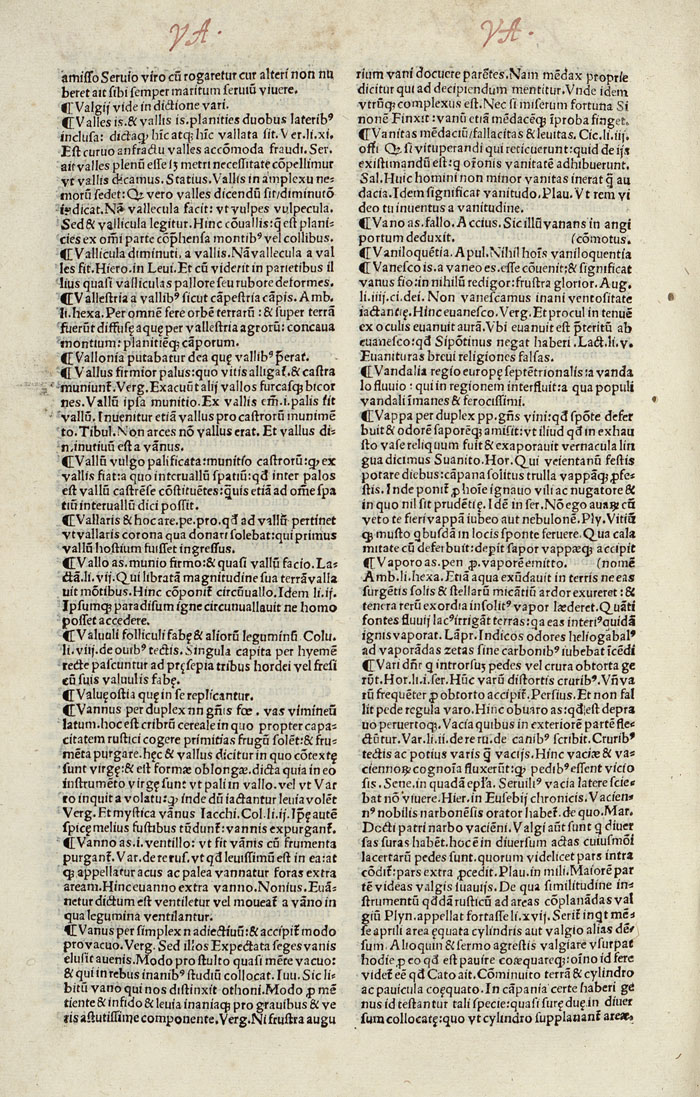 VA.
amisso Seruio viro cũ rogaretur cur alteri non nu
beret ait sibi semper maritum seruiũ viuere.
¶ Valgij vide in dictione vari.
¶ Valles is.& vallis is.planities duobus lateribꝰ
inclusa: dictaqꝫ hĩc atqꝫ hĩc vallata sit. Ver.li.xi.
Est curuo anfractu valles accõmoda fraudi. Ser.
ait valles plenũ esse sꝫ metri necessitate cõpellimur
vt vallis dicamus. Statius. Vallis in amplexu ne-
morũ sedet: Qꝫ vero valles dicendũ sit/diminutõ
indicat. Nã vallecula facit: vt vulpes vulpecula.
Sed & vallicula legitur. Hinc cõuallis: q̃ est plani-
cies ex om̃i parte cõp̃hensa montibꝰ vel collibus.
¶ Vallicula diminuti. a vallis. Nã vallecula a val
les fit. Hiero. in Leui. Et cũ viderit in parietibus il
lius quasi valliculas pallore seu rubore deformes.
¶ Vallestria a vallibꝰ sicut cãpestria cãpis. Amb.
li.hexa. Per omnẽ fere orbẽ terrarũ : & super terrã
fuerũt diffusę aquę per vallestria agrorũ: concaua
montium: planitiẽqꝫ cãporum.
¶ Vallonia putabatur dea quę vallibꝰ p̃erat.
¶ Vallus firmior palus: quo vitis alligat̃.& castra
muniunt̃. Verg. Exacuũt alij vallos furcasqꝫ bicor
nes. Vallũ ipsa munitio. Ex vallis em̃.i.palis fit
vallũ. Inuenitur etiã vallus pro castrorũ munimẽ
to. Tibul. Non arces nõ vallus erat. Et vallus di-
minutiuũ est a vãnus.
¶ Vallũ vulgo palificata: munitio castrorũ: qꝫ ex
vallis fiat: a quo interuallũ spatiũ: qd̃ inter palos
est vallũ castrẽse cõstituẽtes: q̃uis etiã ad om̃e spa
tiũ interuallũ dici possit.
¶ Vallaris & hoc are.pe.pro. qd̃ ad vallũ pertinet
vt vallaris corona qua donari solebat: qui primus
vallũ hostium fuisset ingressus.
¶ Vallo as. munio firmo: & quasi vallũ facio. La-
ctã.li.vij. Qui libratã magnitudine sua terrã valla
uit mõtibus. Hinc cõponit̃ circũuallo. Idem li.ij.
Ipsumqꝫ paradisum igne circunuallauit ne homo
posset accedere.
¶ Valuuli folliculi fabę & aliorũ leguminũ Colu.
li.viij. de ouibꝰ tectis. Singula capita per hyemẽ
recte pascuntur ad pręsepia tribus hordei vel fresi
cũ suis valuulis fabę.
¶ Valuę ostia quę in se replicantur.
¶ Vannus per duplex nn gñis fœ. vas vimineũ
latum. hoc est cribrũ cereale in quo propter capa-
citatem rustici cogere primitias frugũ solẽt: & fru-
mẽta purgare. hęc & vallus dicitur in quo cõtextę
sunt virgę: & est formæ oblongæ. dicta quia in eo
instrumẽto virgę sunt: vt pali in vallo. vel vt Var
ro inquit a volatu: qꝫ inde dũ iactantur leuia volẽt
Verg. Et mystica vãnus Iacchi. Col.li.ij. Ip̃ę autẽ
spicę melius fustibus tũdunt̃: vannis expurgant̃.
¶ Vanno as.i. ventillo: vt fit vãnis cũ frumenta
purgant̃. Var. de re rus. vt qd̃ leuissimũ est in ea: at
qꝫ appellatur acus ac palea vannatur foras extra
aream. Hinc euanno extra vanno. Nonius. Euã-
netur dictum est ventiletur vel moueat̃ a vãno in
qua legumina ventilantur.
¶ Vanus per simplex n adiectiuũ: & accipit̃ modo
pro vacuo. Verg. Sed illos Expectata seges vanis
elusit auenis. Modo pro stulto quasi mẽte vacuo:
& qui in rebus inanibꝰ studiũ collocat. Iuu. Sic li-
bitũ vano qui nos distinxit othoni. Modo ꝑ mẽ
tiente & infido & leuia inaniaqꝫ pro grauibus & ve
ris astutissime componente. Verg. Ni frustra augu
VA.
rium vani docuere parẽtes. Nam mẽdax proprie
dicitur qui ad decipiendum mentitur. Vnde idem
vtrũqꝫ complexus est. Nec si miserum fortuna Si
nonẽ Finxit: vanũ etiã mẽdacẽqꝫ ĩproba finget.
¶ Vanitas mẽdaciũ/fallacitas & leuitas. Cic.li.iij.
offi Qꝫ si vituperandi qui reticuerunt: quid de ijs
existimandũ est: q̃ or̃onis vanitatẽ adhibuerunt.
Sal. Huic homini non minor vanitas inerat q̃ au
dacia. Idem significat vanitudo. Plau. Vt rem vi
deo tu inuentus a vanitudine.
¶ Vano as. fallo. Accius. Sic illũ vanans in angi
portum deduxit. (cõmotus.
¶ Vaniloquẽtia. Apul. Nihil hoĩs vaniloquentia
¶ Vanesco is. a vaneo es. esse cõuenit: & significat
vanus fio: in nihilũ redigor: frustra glorior. Aug.
li.iiij. ci.dei. Non vanescamus inani ventositate
iactantię. Hinc euanesco. Verg. Et procul in tenuẽ
ex oculis euanuit aurã. Vbi euanuit est p̃teritũ ab
euanesco: qd̃ Sipõtinus negat haberi. Lact.li.v.
Euanituras breui religiones falsas.
¶ Vandalia regio europę septẽtrionalis: a vanda
lo fluuio : qui in regionem interfluit: a qua populi
vandali ĩmanes & ferocissimi.
¶ Vappa per duplex pp. gñs vini: qd̃ spõte defer
buit & odorẽ saporẽqꝫ amisit: vt illud qd̃ in exhau
sto vase reliquum fuit & exaporauit vernacula lin
gua dicimus Suanito. Hor. Qui veientanũ festis
potare diebus: cãpana solitus trulla vappãqꝫ ꝓfe-
stis. Inde ponit̃ ꝓ hoĩe ignauo vili ac nugatore &
in quo nil sit prudẽtię. Idẽ in ser. Nõ ego auarũ cũ
veto te fieri vappã iubeo aut nebulonẽ. Ply. Vitiũ
qꝫ musto qꝫbusdã in locis sponte feruere. Qua cala
mitate cũ deferbuit: depit sapor vappæqꝫ accipit
¶ Vaporo as. pen ꝓ. vaporẽ emitto. (nomẽ
Amb.li.hexa. Etiã aqua exũdauit in terris ne eas
surgẽtis solis & stellarũ micãtiũ ardor exureret : &
tenera rerũ exordia insolitꝰ vapor læderet. Quãti
fontes fluuij lacꝰ irrigãt terras: q̃a eas interiꝰ quidã
ignis vaporat. Lãpr. Indicos odores heliogabalꝰ
ad vaporãdas zetas sine carbonibꝰ iubebat ĩcẽdi
¶ Vari dñr q̃ introrsuꝫ pedes vel crura obtorta ge
rũt. Hor.li.i.ser. Hũc varũ distortis cruribꝰ. Vñ va
rũ frequẽter ꝓ obtorto accipit̃. Persius. Et non fal
lit pede regula varo. Hinc obuaro as: qd̃ est depra
uo peruertoqꝫ. Vacia quibus in exteriorẽ partẽ fle-
ctũtur. Var.li.ii.de re ru. de canibꝰ scribit. Cruribꝰ
tectis ac potius varis q̃ vacijs. Hinc vaciæ & va-
ciennorꝫ cognoĩa fluxerũt: qꝫ pedibꝰ essent vicio
sis. Sene. in quadã ep̃la. Seruiliꝰ vacia latere scie-
bat nõ viuere. Hier. in Eusebij chronicis. Vacien-
nꝰ nobilis narbonẽsis orator habet̃. de quo. Mar.
Docti patri narbo vaciẽni. Valgi aũt sunt q̃ diuer
sas suras habẽt. hoc ẽ in diuersum actas cuiusmõi
lacertarũ pedes sunt. quorum videlicet pars intra
cõdit̃: pars extra ꝓcedit. Plau. in mili. Maiorẽ par
tẽ videas valgis suauijs. De qua similitudine in-
strumentũ qd̃dã rusticũ ad areas cõplanãdas val
giũ Plyn. appellat fortasse li.xvij. Serit̃ inqt̃ mẽ-
se aprili area ęquata cylindris aut valgio alias dẽ-
sum. Alioquin & sermo agrestis valgiare vsurpat
hodie ꝓ eo qd̃ est pauire coæquareqꝫ: oĩno id sere
videt̃ eẽ qd̃ Cato ait. Cõminuito terrã & cylindro
ac pauicula coęquato. In cãpania certe haberi ge
nus id testantur tali specie: quasi surę duę in diuer
sum collocatę: quo vt cylindro supplanant̃ areæ.